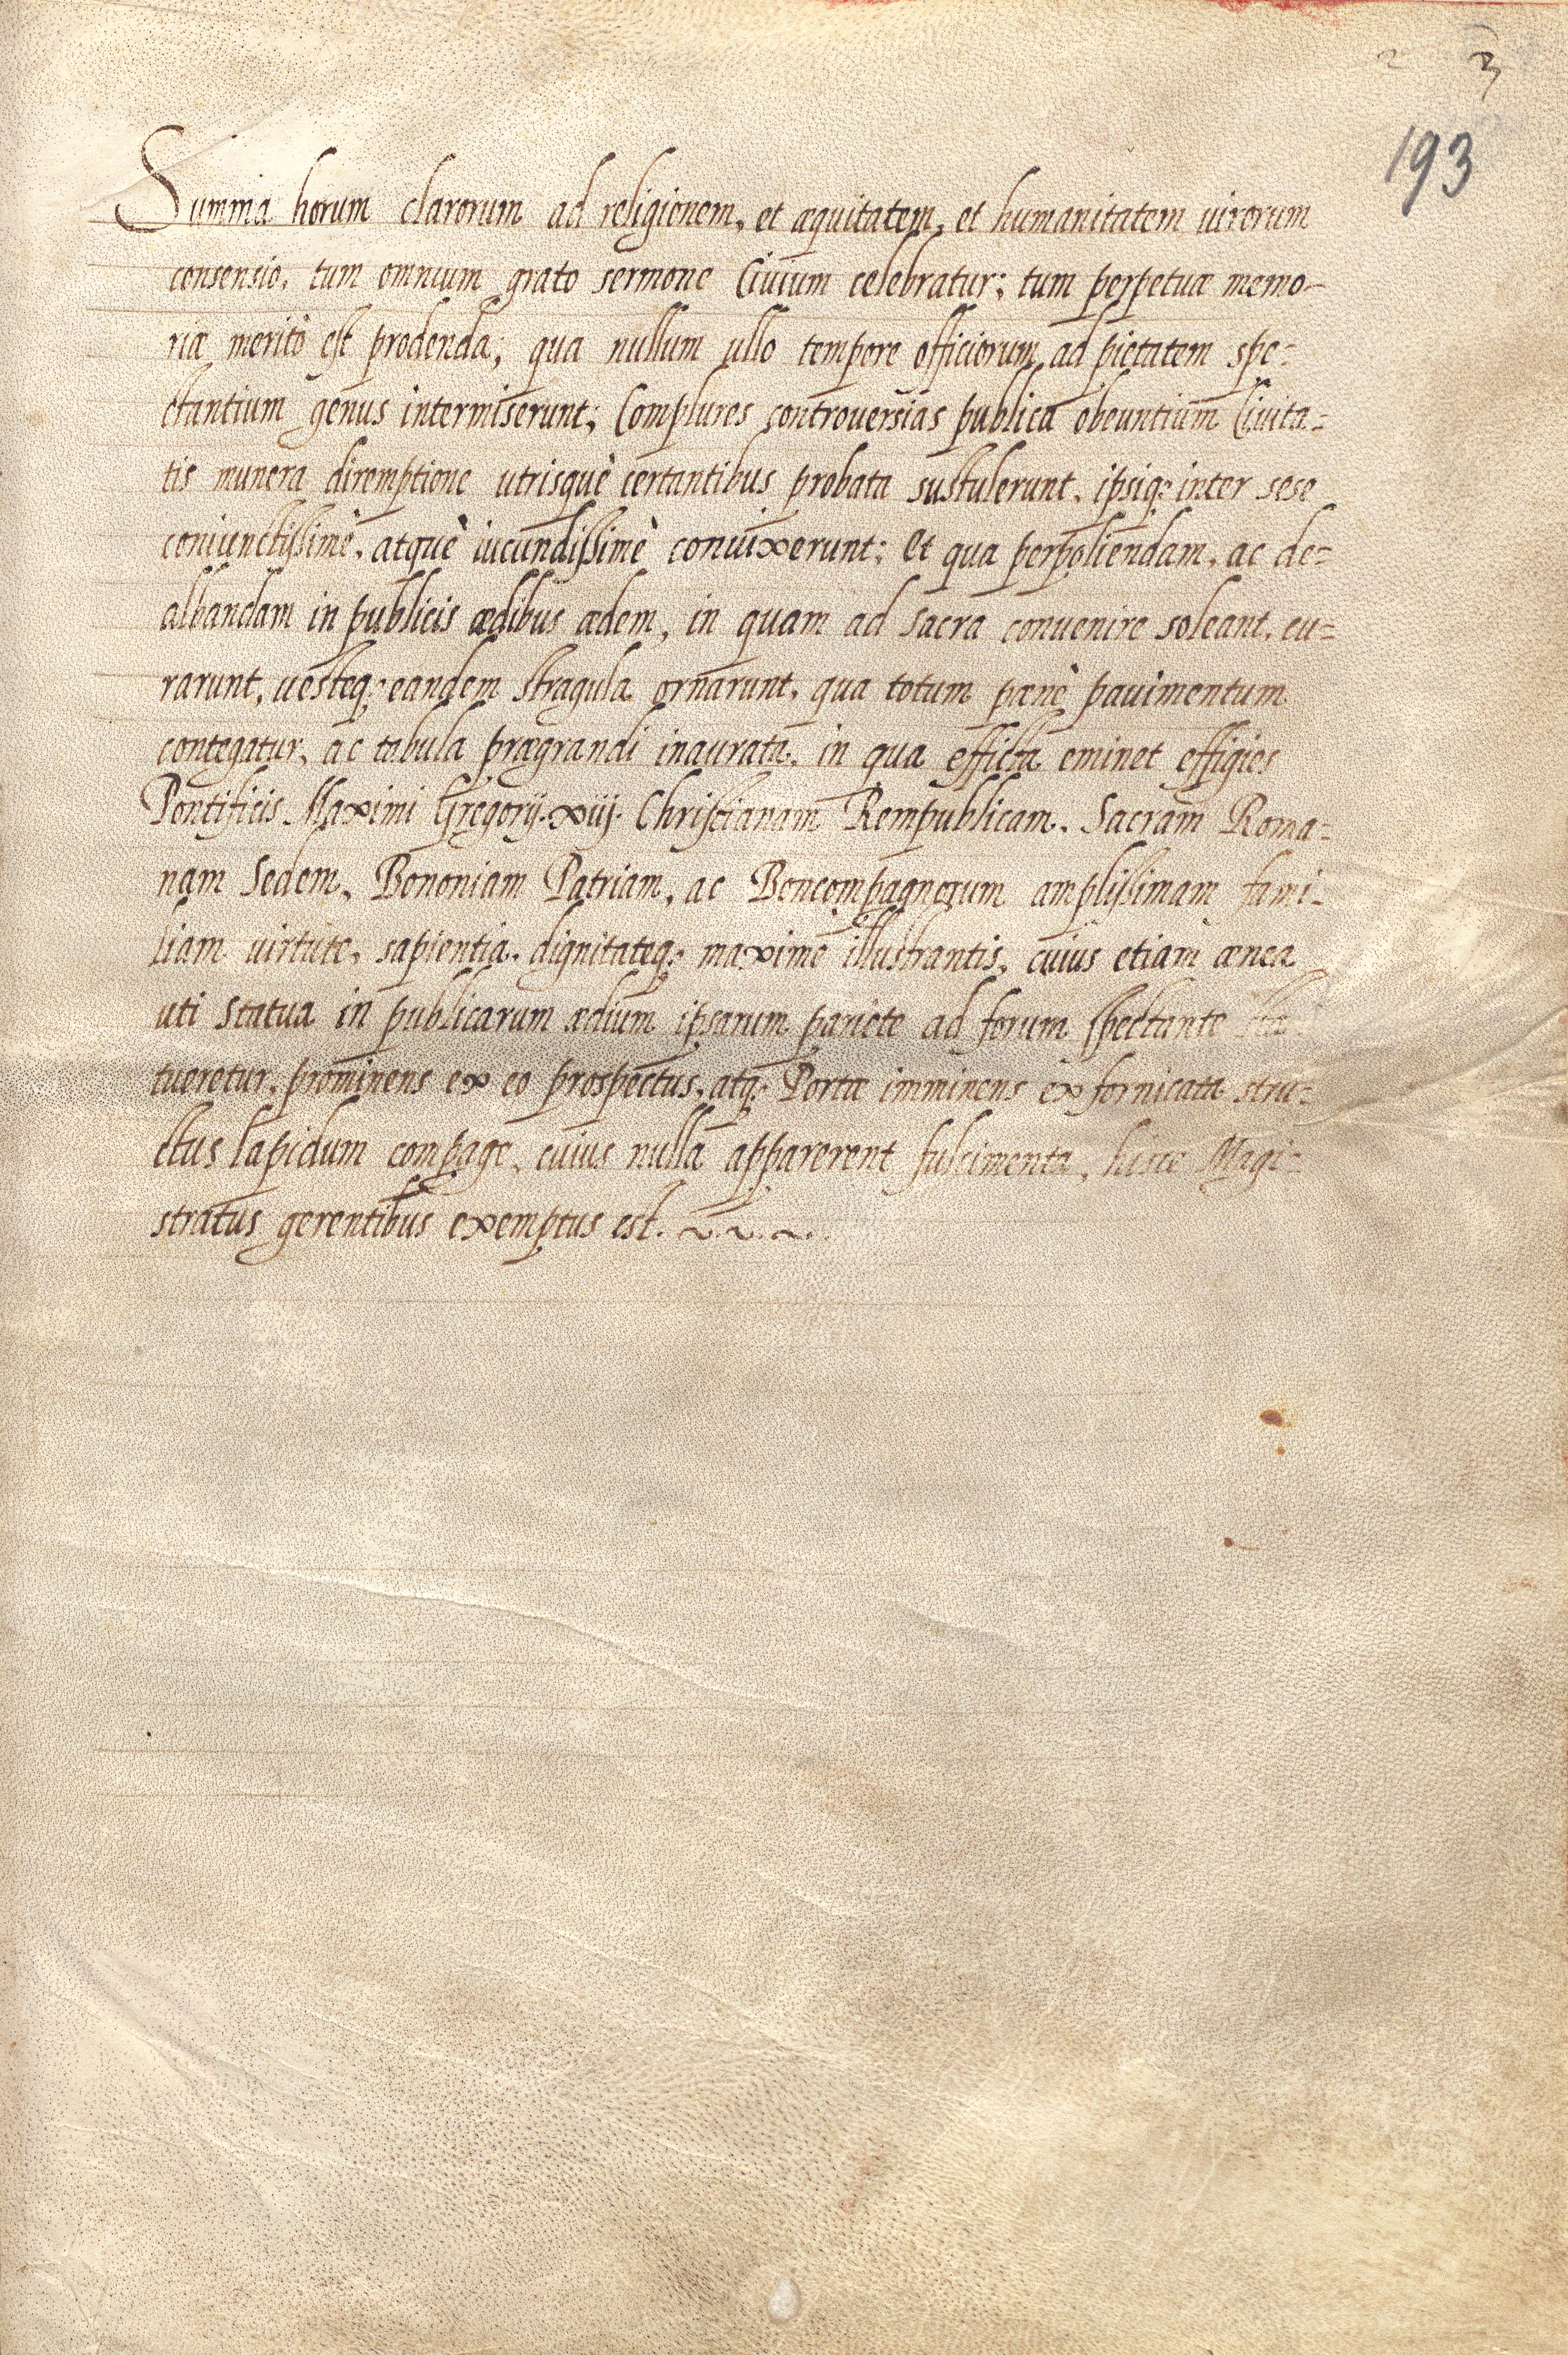 2 3
193
Summa horum clarorum ad religionem, et æquitatem, et humanitatem uirorum
consensio, tum omnium grato sermone Ciuium celebratur; tum perpetuæ memo-
riæ meritò est prodenda; qua nullum ullo tempore officiorum ad pietatem spe=
ctantium genus intermiserunt; Complures controuersias publica obeuntium Ciuita=
tis munera diremptione utrisquè certantibus probata sustulerunt, ipsiq; inter sese
coniunctissimè, atquè iucundissimè conuixerunt; Et qua perpoliendam, ac de=
albandam in publicis ædibus ædem, in quam ad sacra conuenire soleant, cu=
rarunt, uesteq; eandem stragula ornarunt, qua totum pænè pauimentum
contegatur, ac tabula prægrandi inaurata, in qua efficta eminet effigies
Pontificis Maximi Gregorij. xiij. Christianam Rempublicam, Sacram Roma=
nam Sedem, Bononiam Patriam, ac Boncompagnorum amplissimam fami-
liam virtute, sapientia, dignitateq; maximè illustrantis, cuius etiam ænea
uti statua in publicarum ædium ipsarum pariete ad forum spectante sta
tueretur, prominens ex eo prospectus, atq; Portæ imminens ex fornicata stru=
ctus lapidum compage, cuius nulla apparerent fulcimenta, hisce Magi=
stratus gerentibus exemptus est.